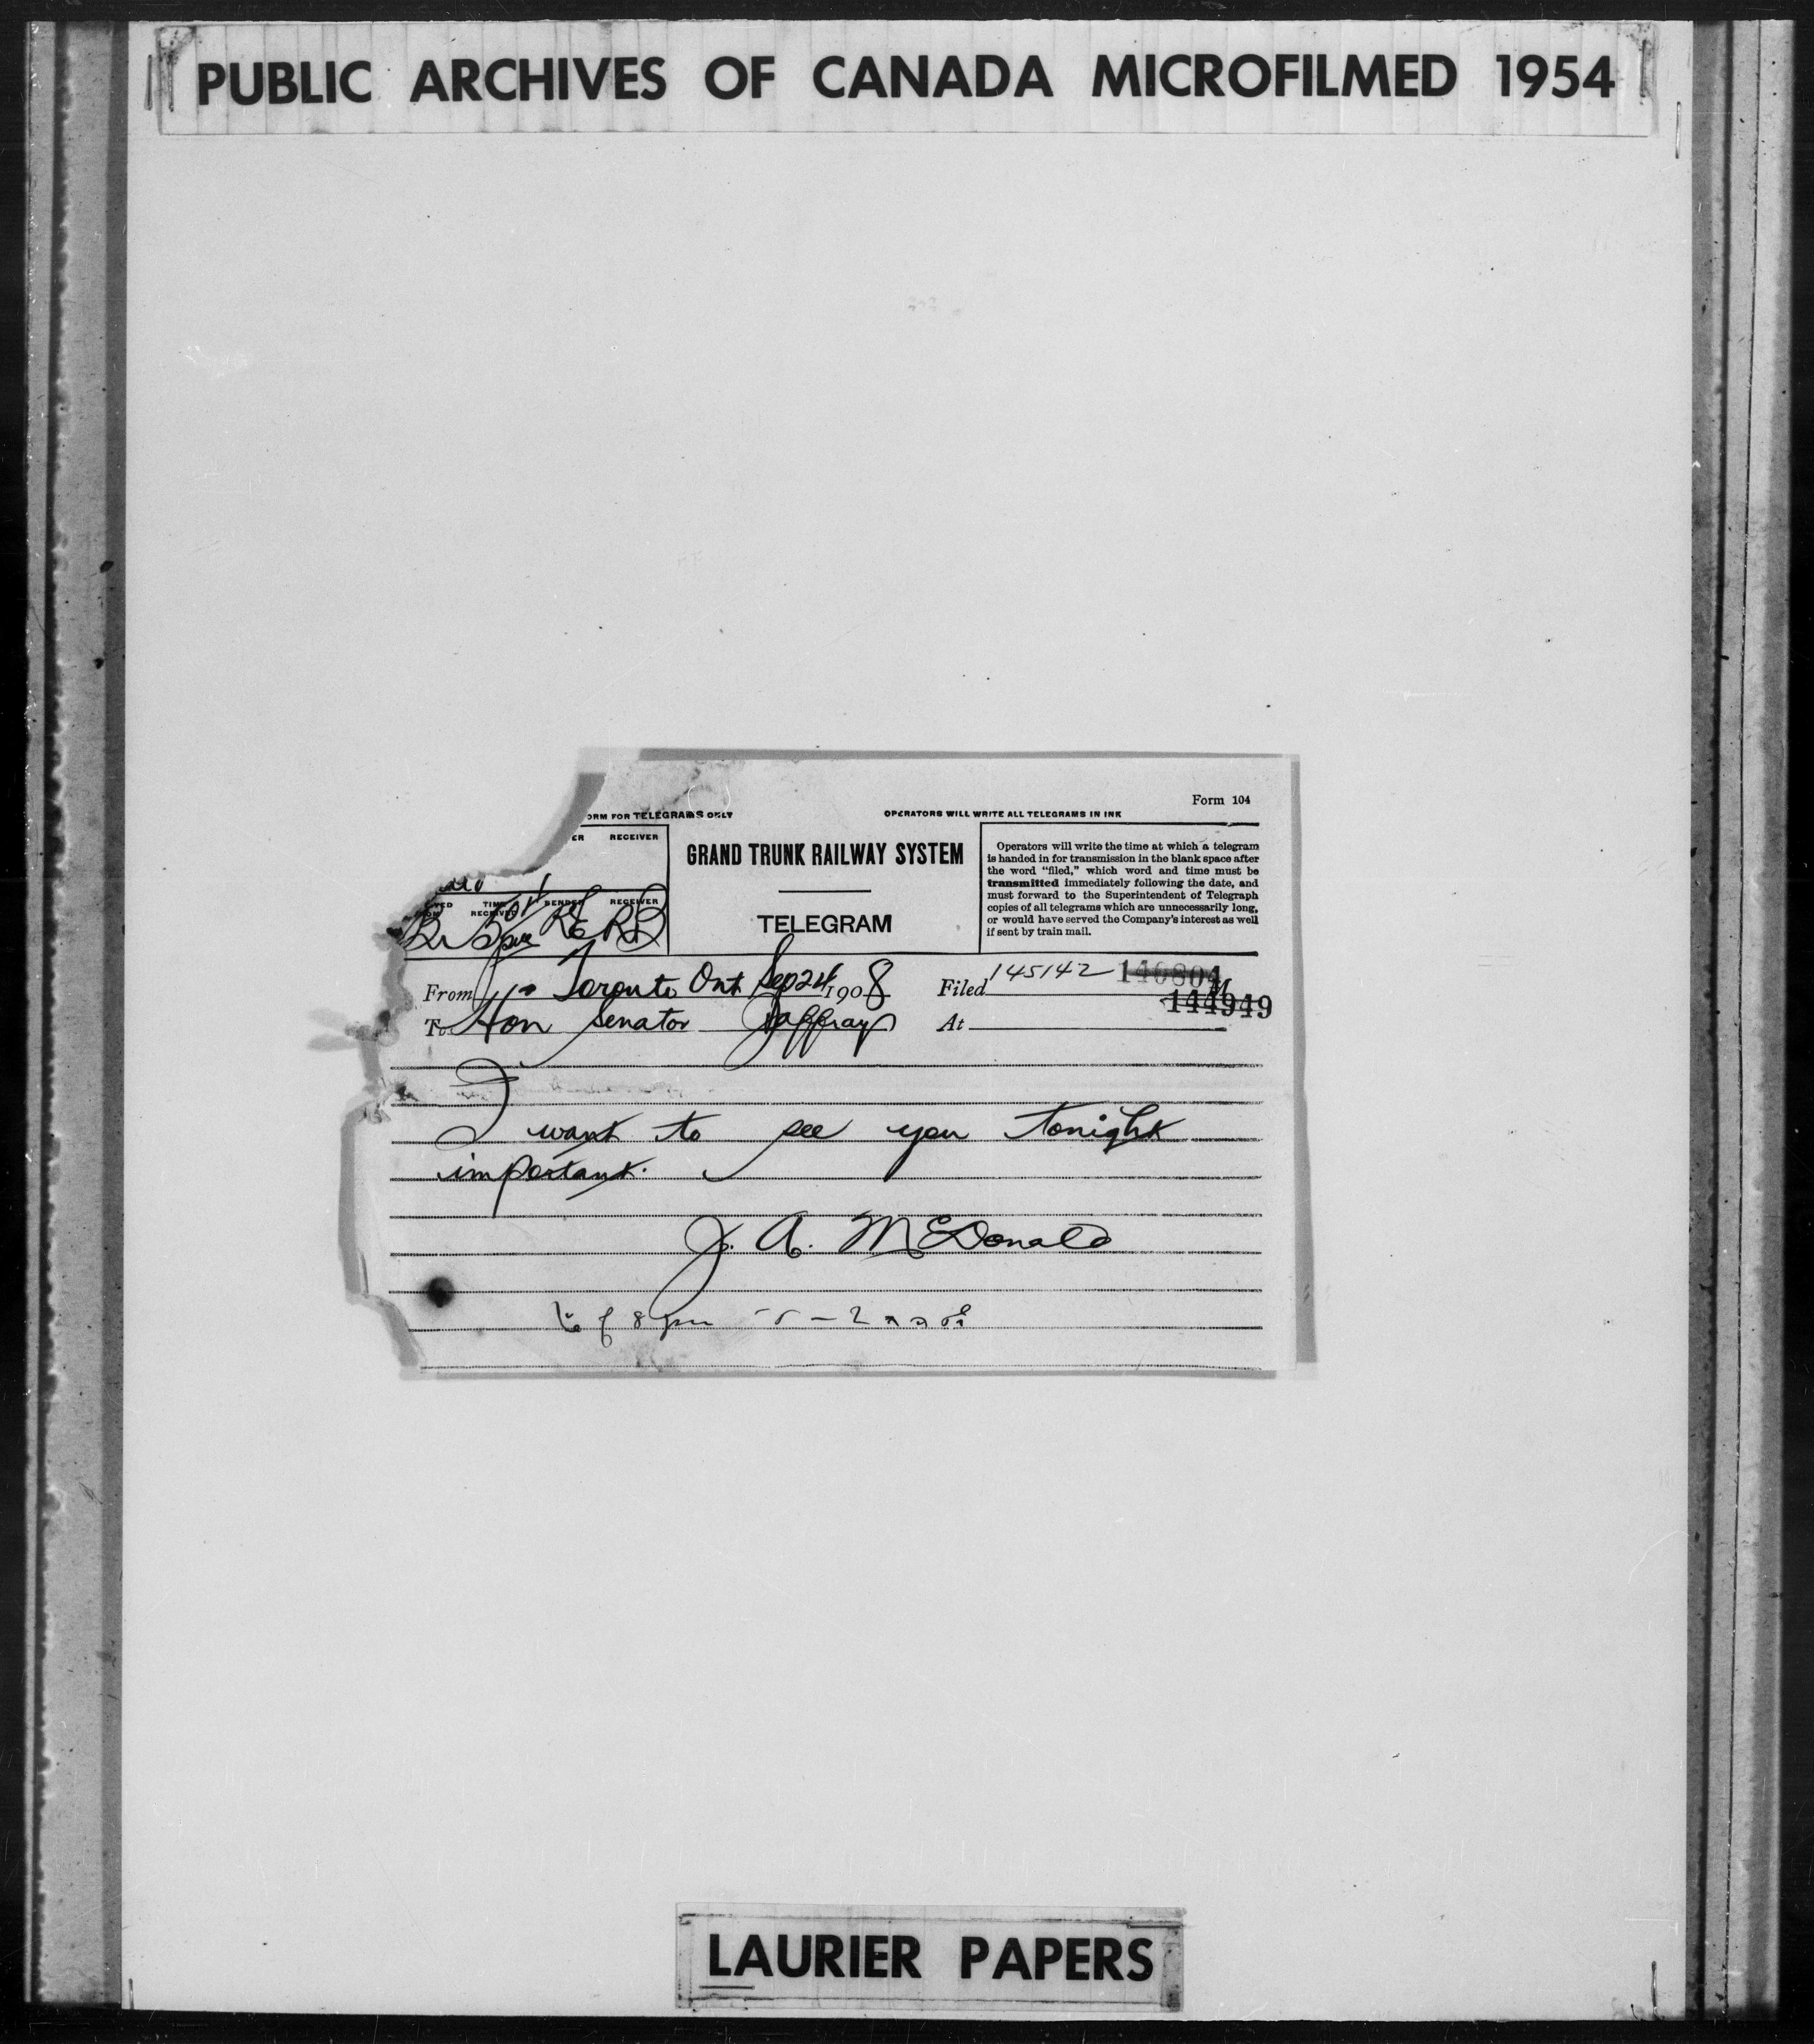 PUBLIC ARCHIVES OF CANADA MICROFILMED 1954
Form 104
ORM FOR TELEGRAMS ONLY
OPERATORS WILL WRITE ALL TELEGRAMS IN INK
ER RECEIVER
TIME RECEIVED SENDER RECEIVER
GRAND TRUNK RAILWAY SYSTEM
TELEGRAM
Operators will write the time at which a telegram
is handed in for transmission in the blank space after
the word "filed," which word and time must be
transmitted immediately following the date, and
must forward to the Superintendent of Telegraph
copies of all telegrams which are unnecessarily long,
or would have served the Company's interest as well
if sent by train mail.
From Toronto Ont Sep 24 1908 Filed 145142 140804 M
144949
To Hon Senator Jaffray At
I want to see you tonight
important.
J. A. McDonald
8 pm
LAURIER PAPERS